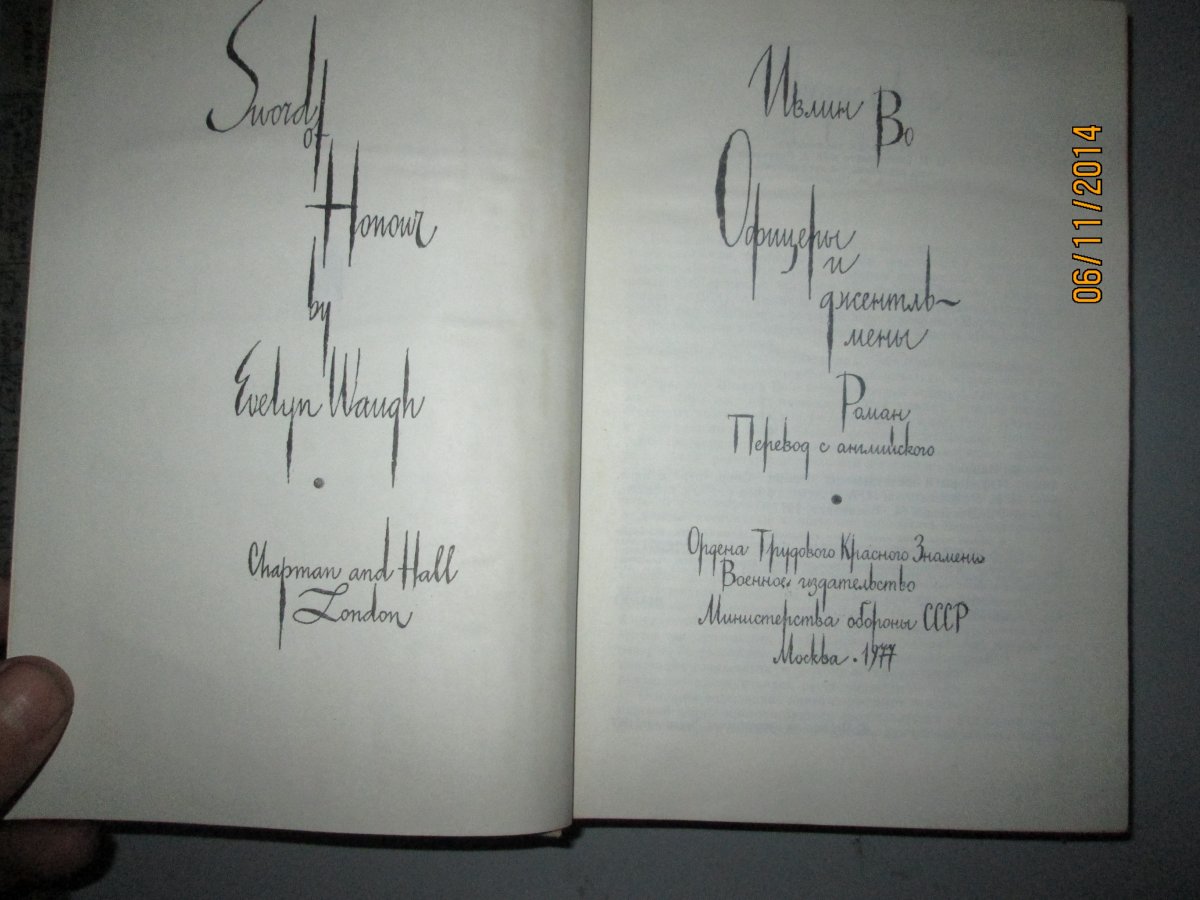 Sword
of
Honour
by
Evelyn Waugh
Chapman and Hall
London
Ивлин Во
Офицеры
и
джентль-
мены
Роман
Перевод с английского
Ордена Трудового Красного Знамени
Военное издательство
Министерства обороны СССР
Москва · 1977
06/11/2014